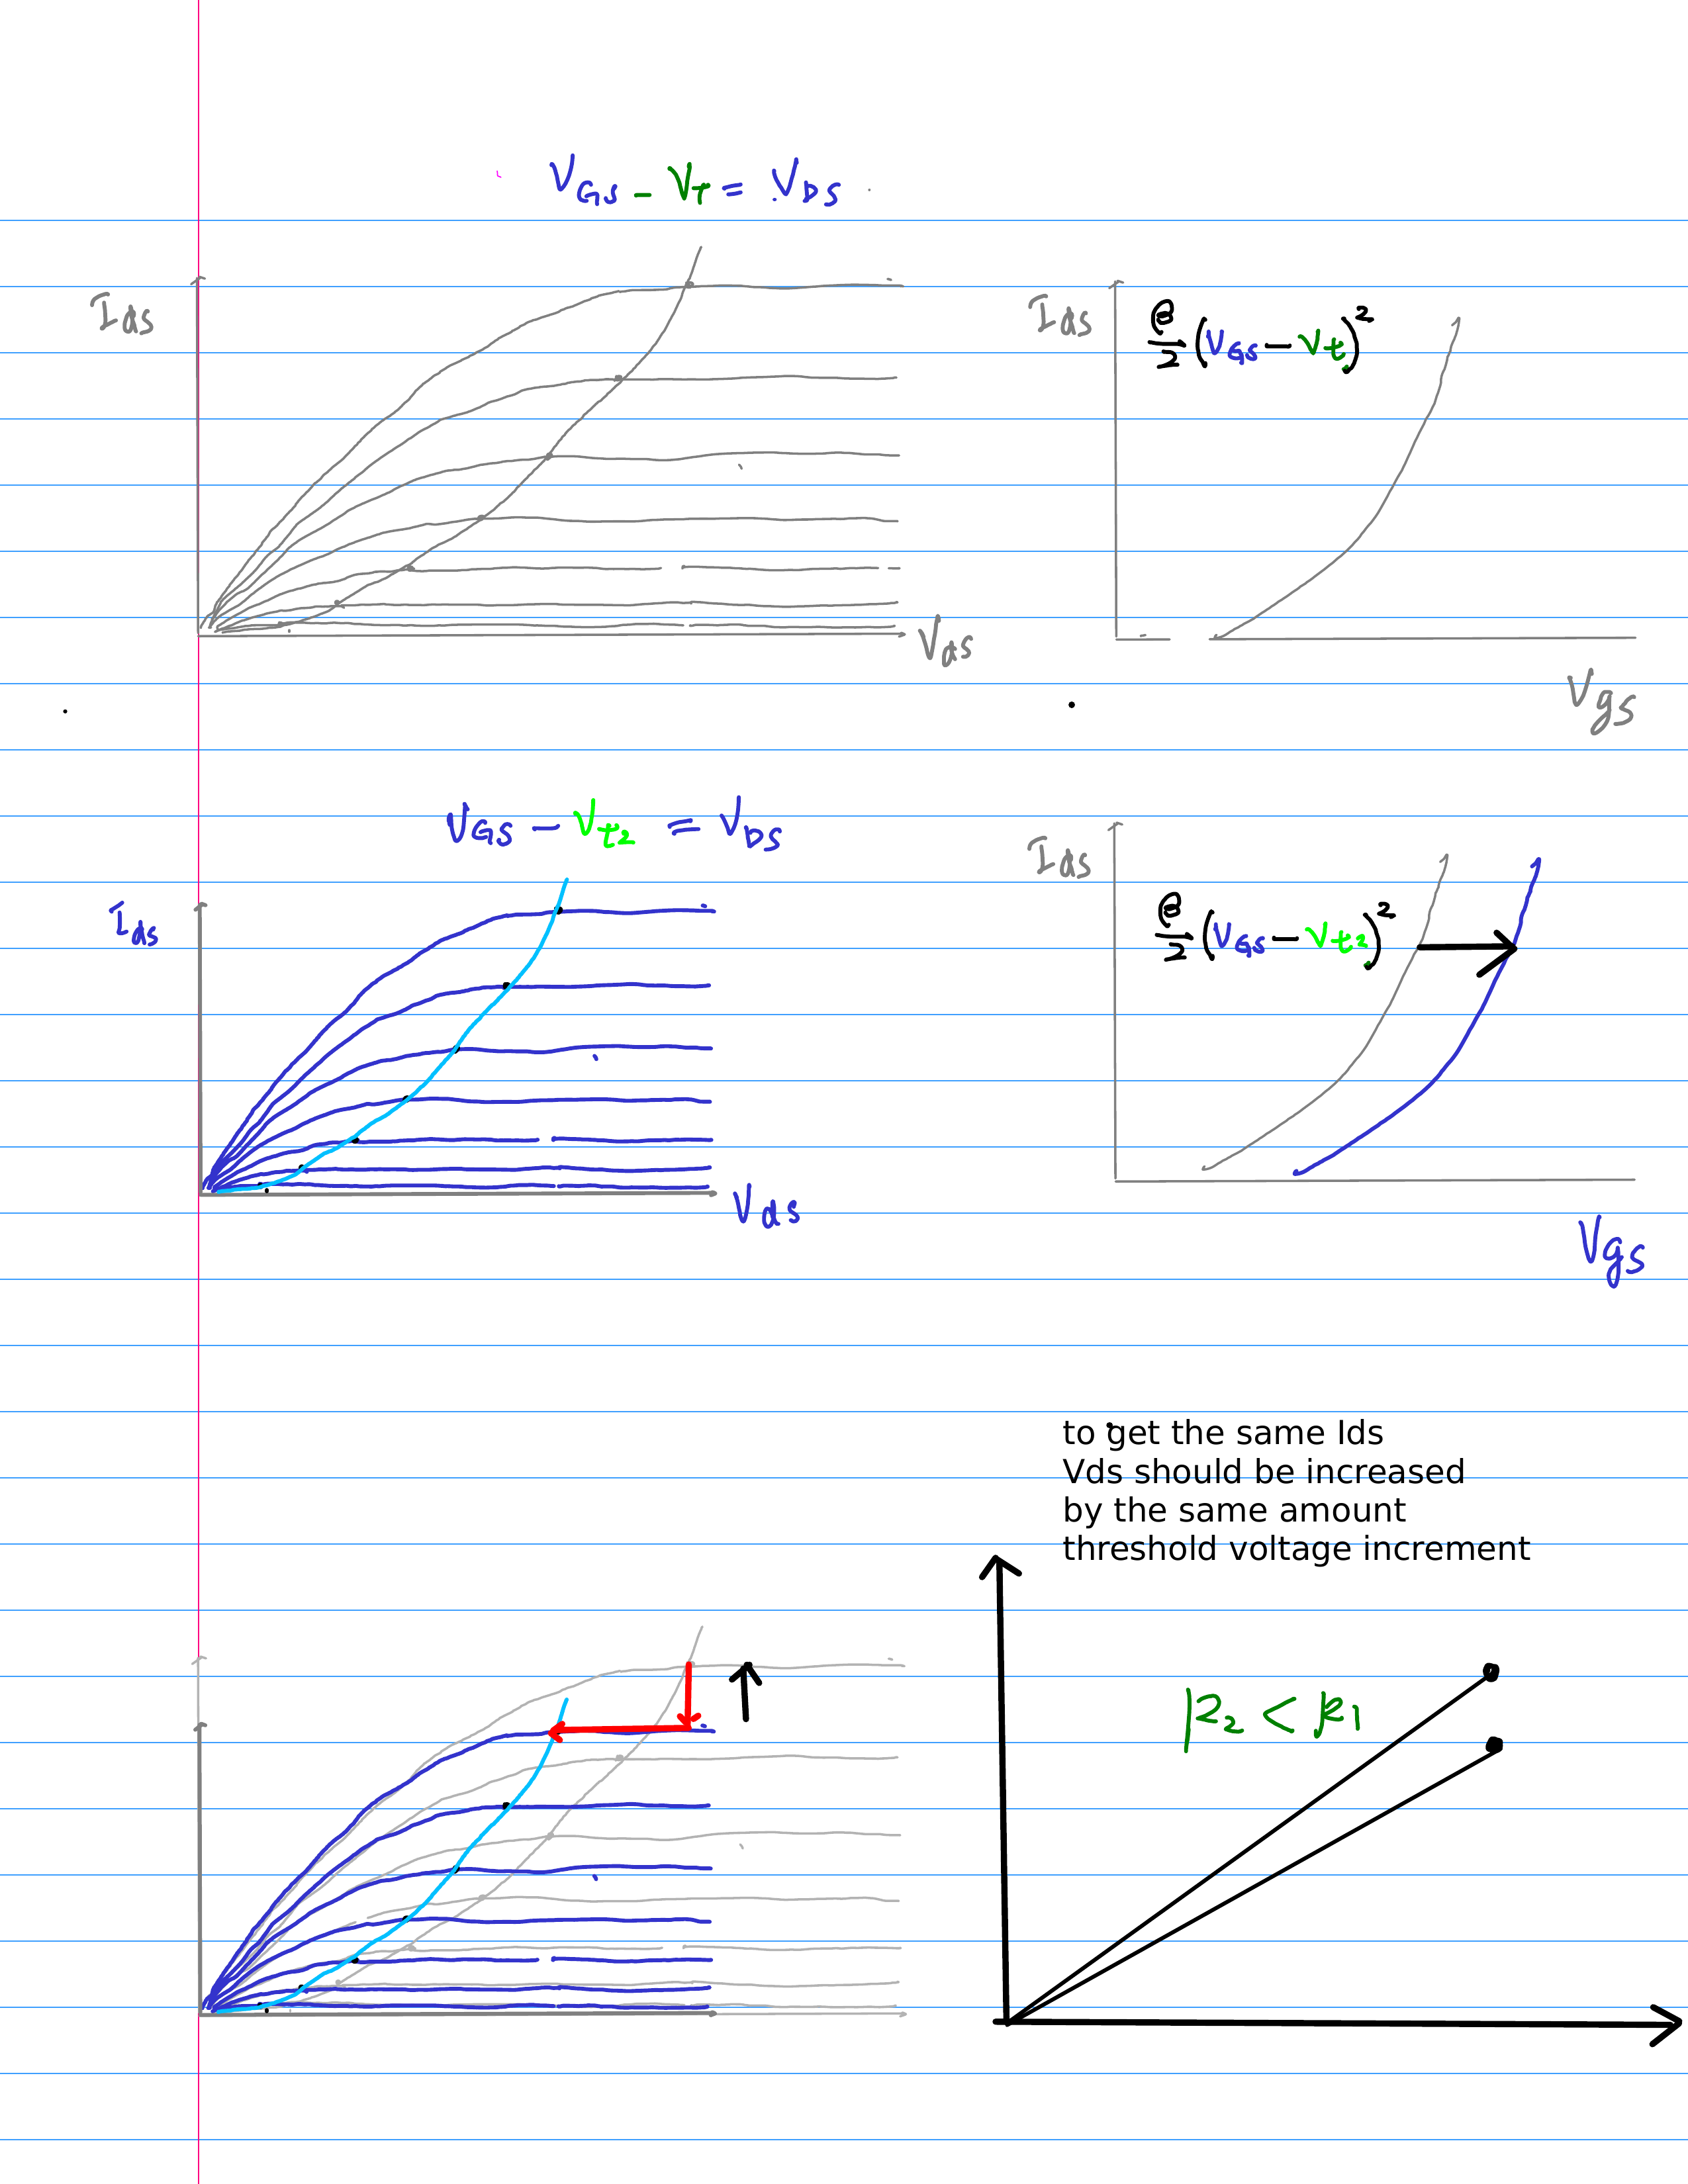 V_GS - V_T = V_DS
I_ds
I_ds
β/2 (V_GS - V_t)²
V_ds
V_gs
V_GS - V_t2 = V_DS
I_ds
I_ds
β/2 (V_GS - V_t2)²
V_ds
V_gs
to get the same Ids
Vds should be increased
by the same amount
threshold voltage increment